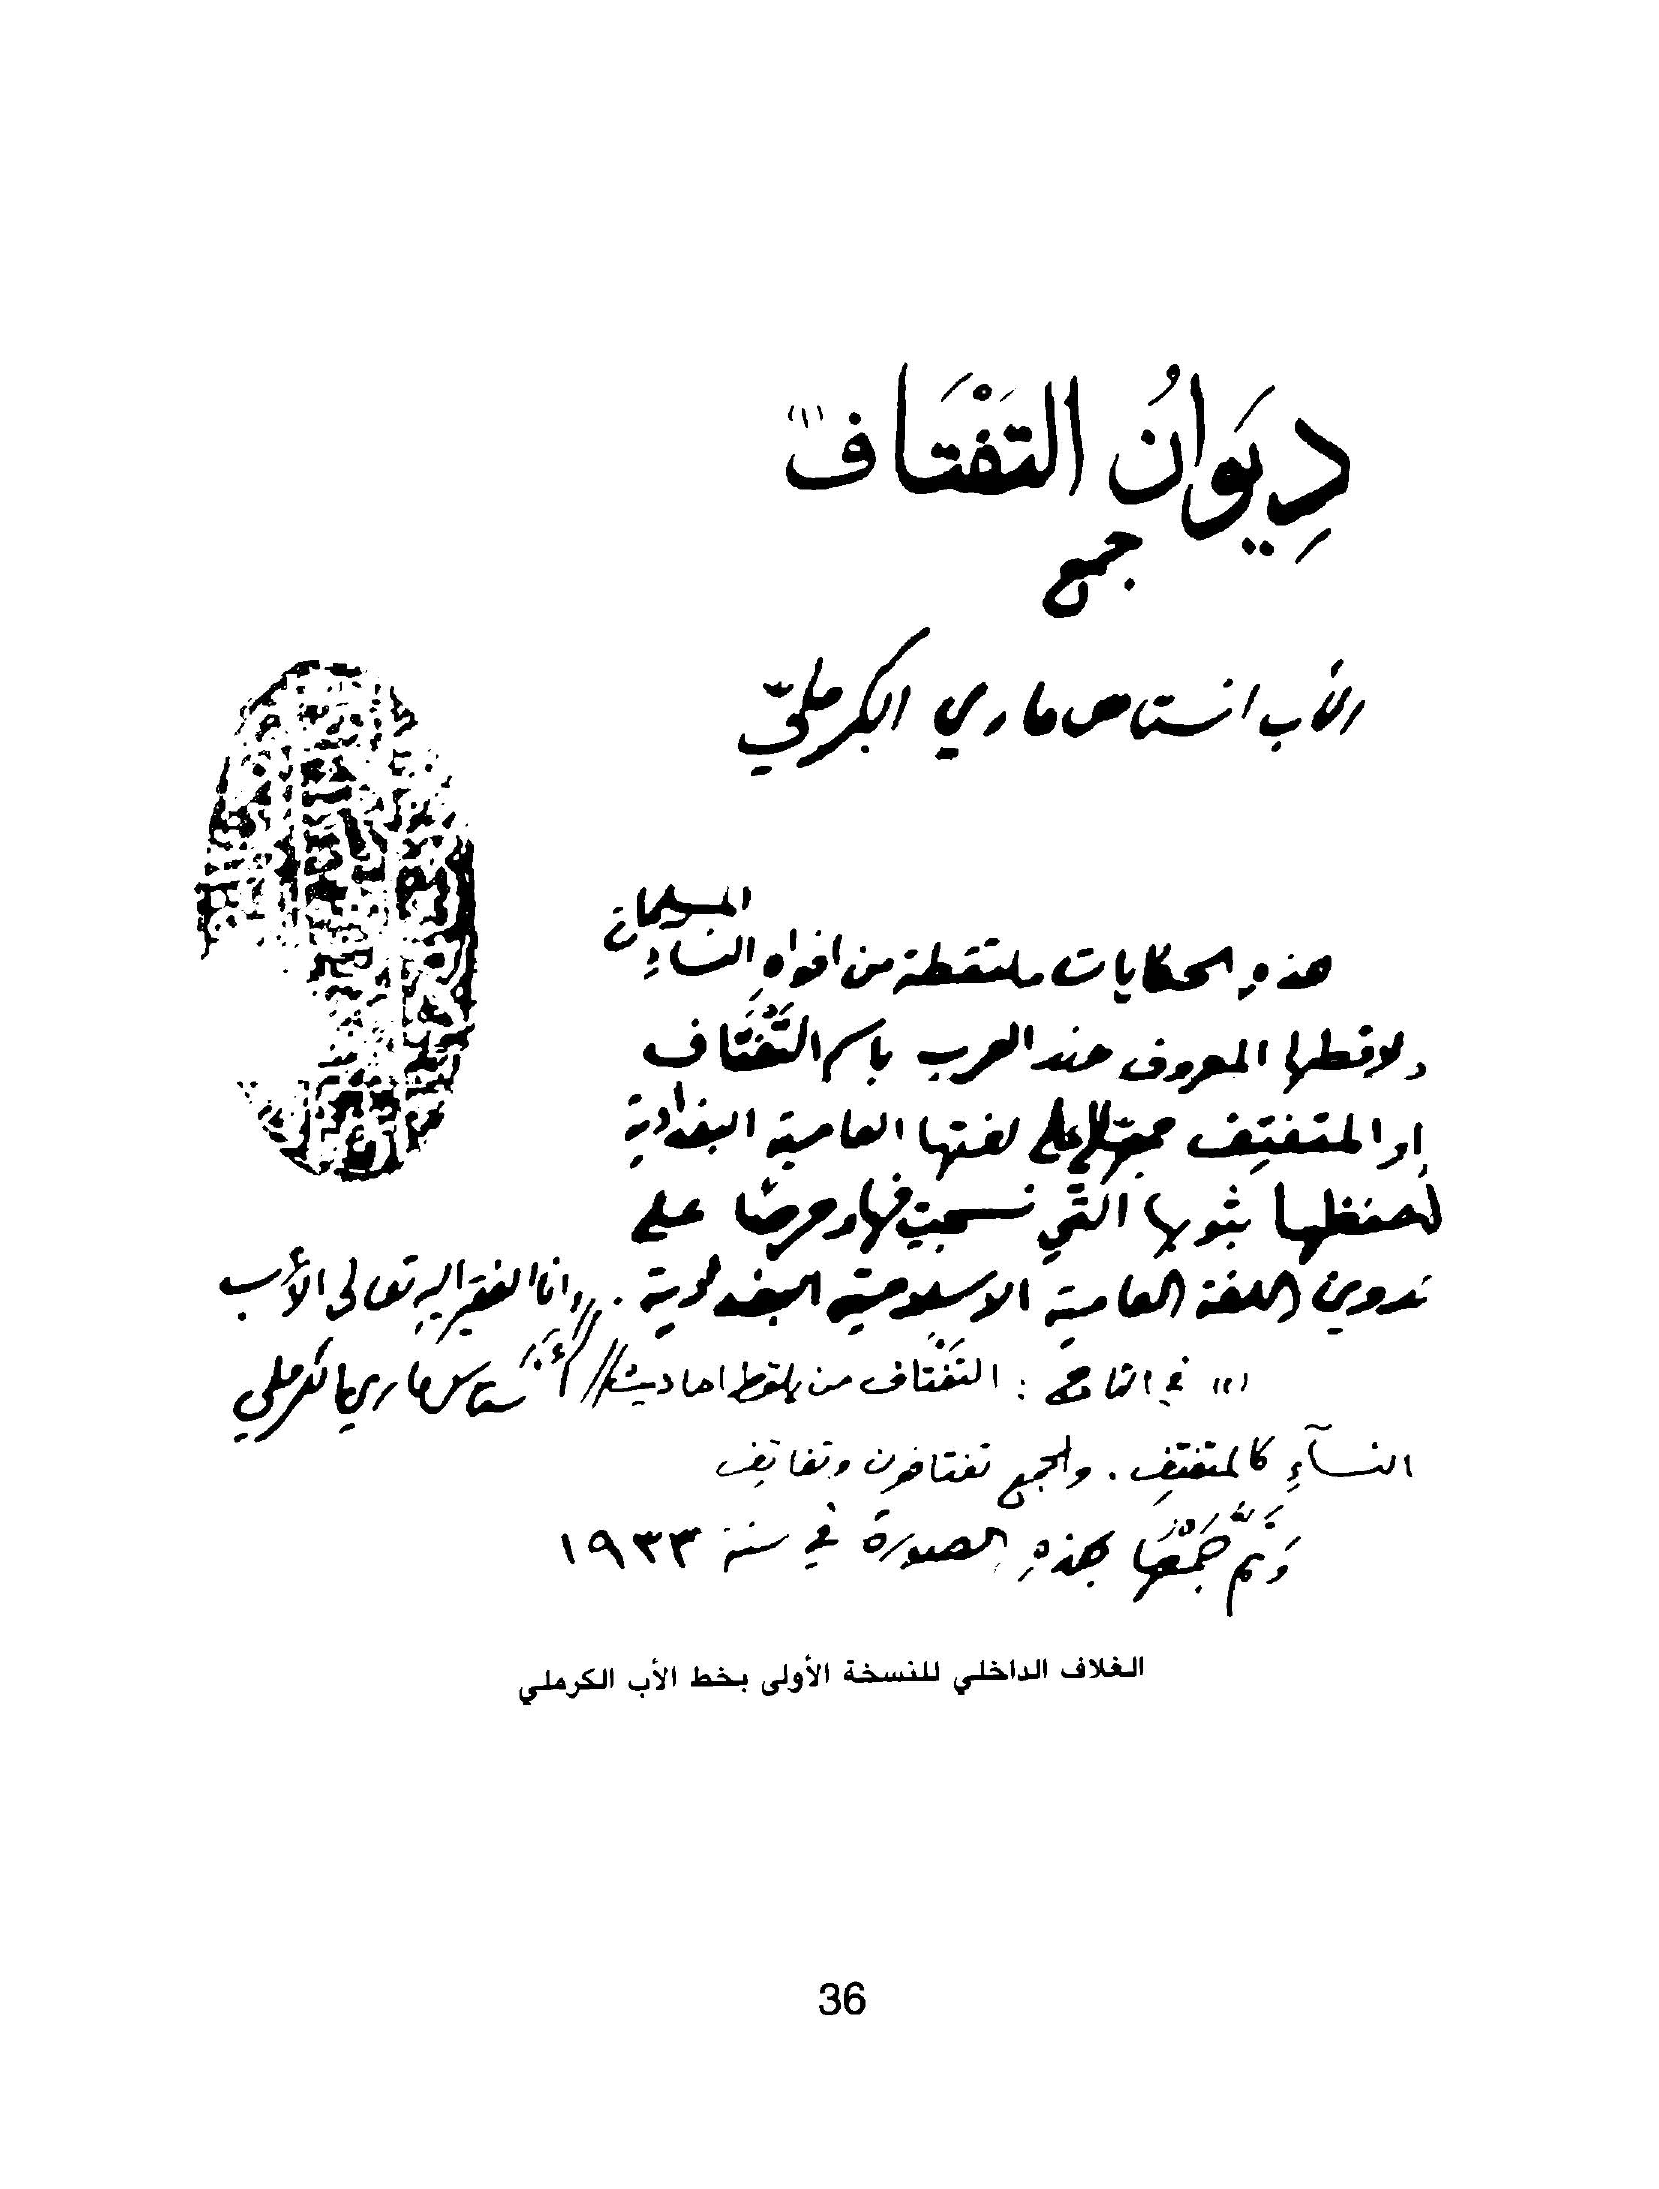 دِيَوانُ التَفْتَاف (١)
جمع
الأب انستاس ماري الكرمليّ
المسلمات
هذهِ الحكايات ملتقطة من افواهِ النساءِ
ولاقطها المعروف عند العرب باسم التَّفْتَاف
او المتفتِف على لغتها العامية البغدادية
لحفظها بثوبها الذي نسجت فيها وحرصًا على
تدوين اللغة العامية الاسلامية البغدادية . وانا الفقير اليهِ تعالى الأب
أنستاس ماري الكرملي
(١) في التاج : التَفْتَاف من يلقط احاديث
النسآءِ كالمتفتِف . والجمع تفتافون وتفاتف
وَتمَّ جَمْعُها بهذهِ الصورة في سنة ١٩٣٣
الغلاف الداخلي للنسخة الأولى بخط الأب الكرملي
36